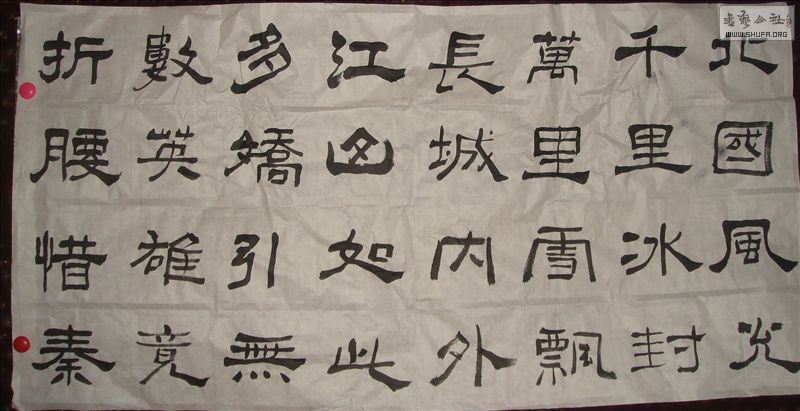 北國風光
千里冰封
萬里雪飄
長城內外
江山如此
多嬌引無
數英雄竟
折腰惜秦
書藝公社
WWW.SHUFA.ORG